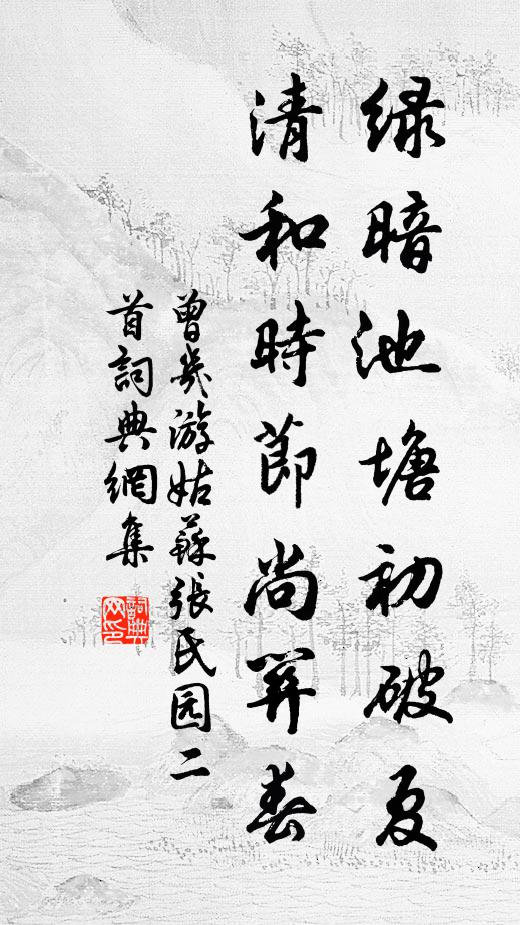 绿暗池塘初破夏
清和時節尚春
曾幾游姑蘇張民园二
首詞典網集
詞典
网印